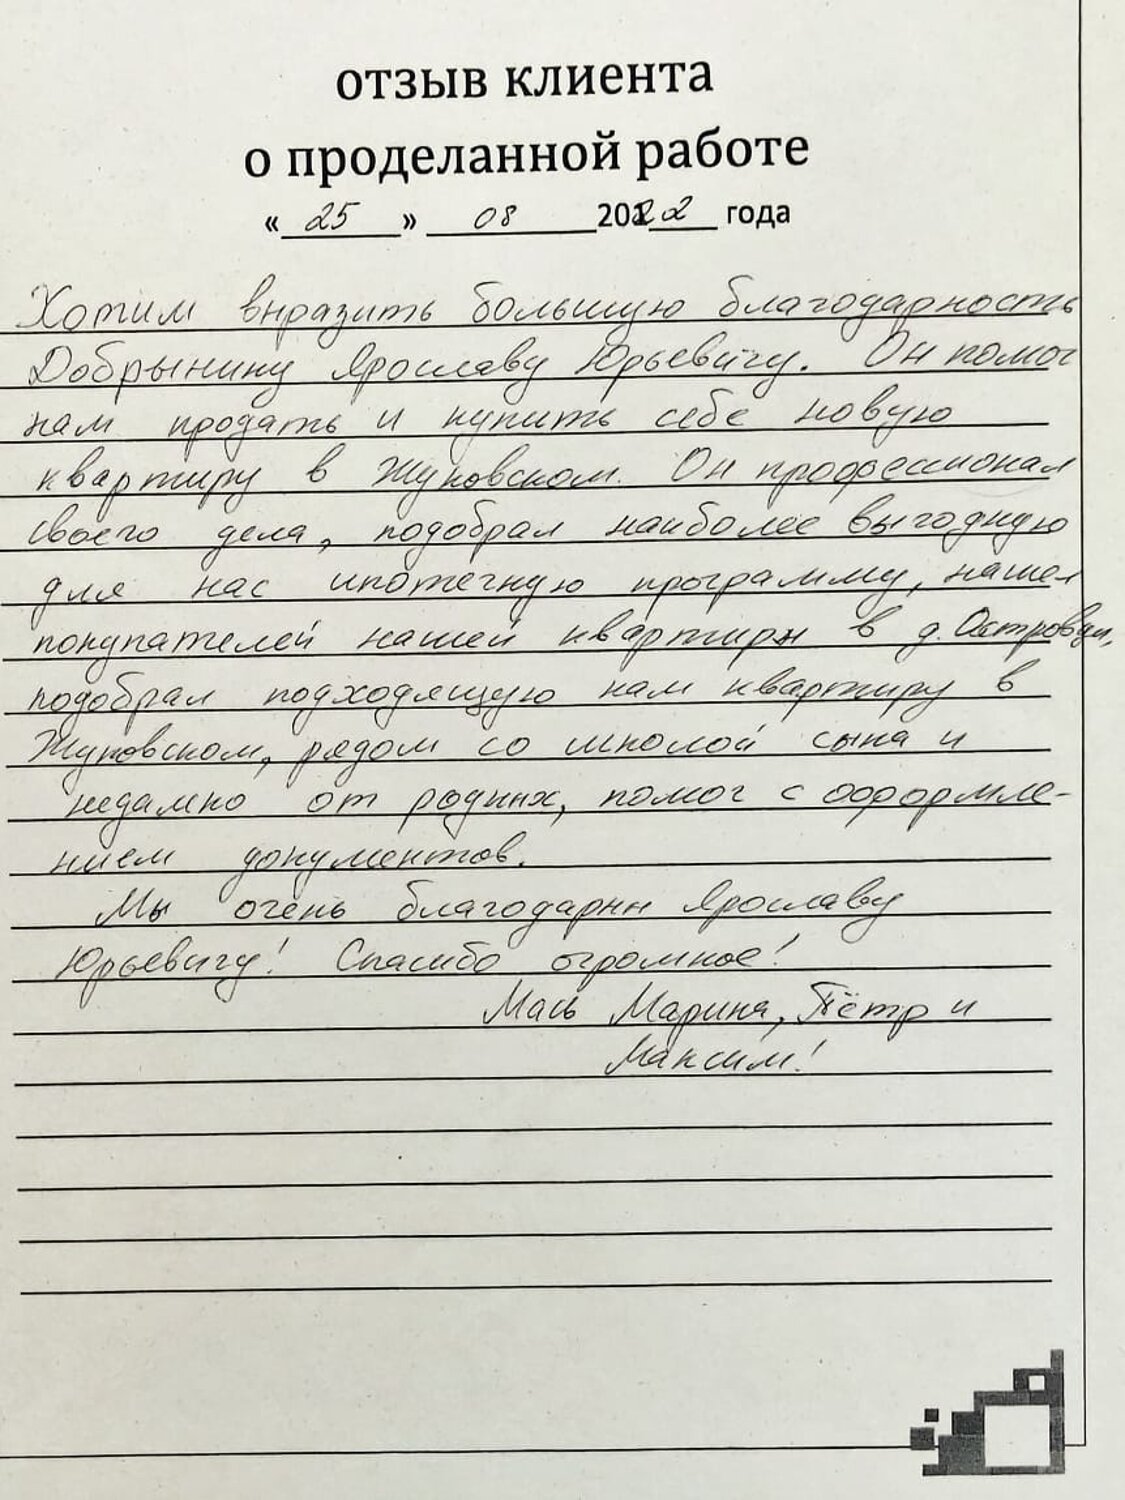 отзыв клиента
о проделанной работе
« 25 » 08 2022 года
Хотим выразить большую благодарность
Добрынину Ярославу Юрьевичу. Он помог
нам продать и купить себе новую
квартиру в Жуковском. Он профессионал
своего дела, подобрал наиболее выгодную
для нас ипотечную программу, нашел
покупателей нашей квартиры в д. Островцы,
подобрал подходящую нам квартиру в
Жуковском, рядом со школой сына и
недалеко от родных, помог с оформле-
нием документов.
Мы очень благодарны Ярославу
Юрьевичу! Спасибо огромное!
Мась Марина, Пётр и
Максим!